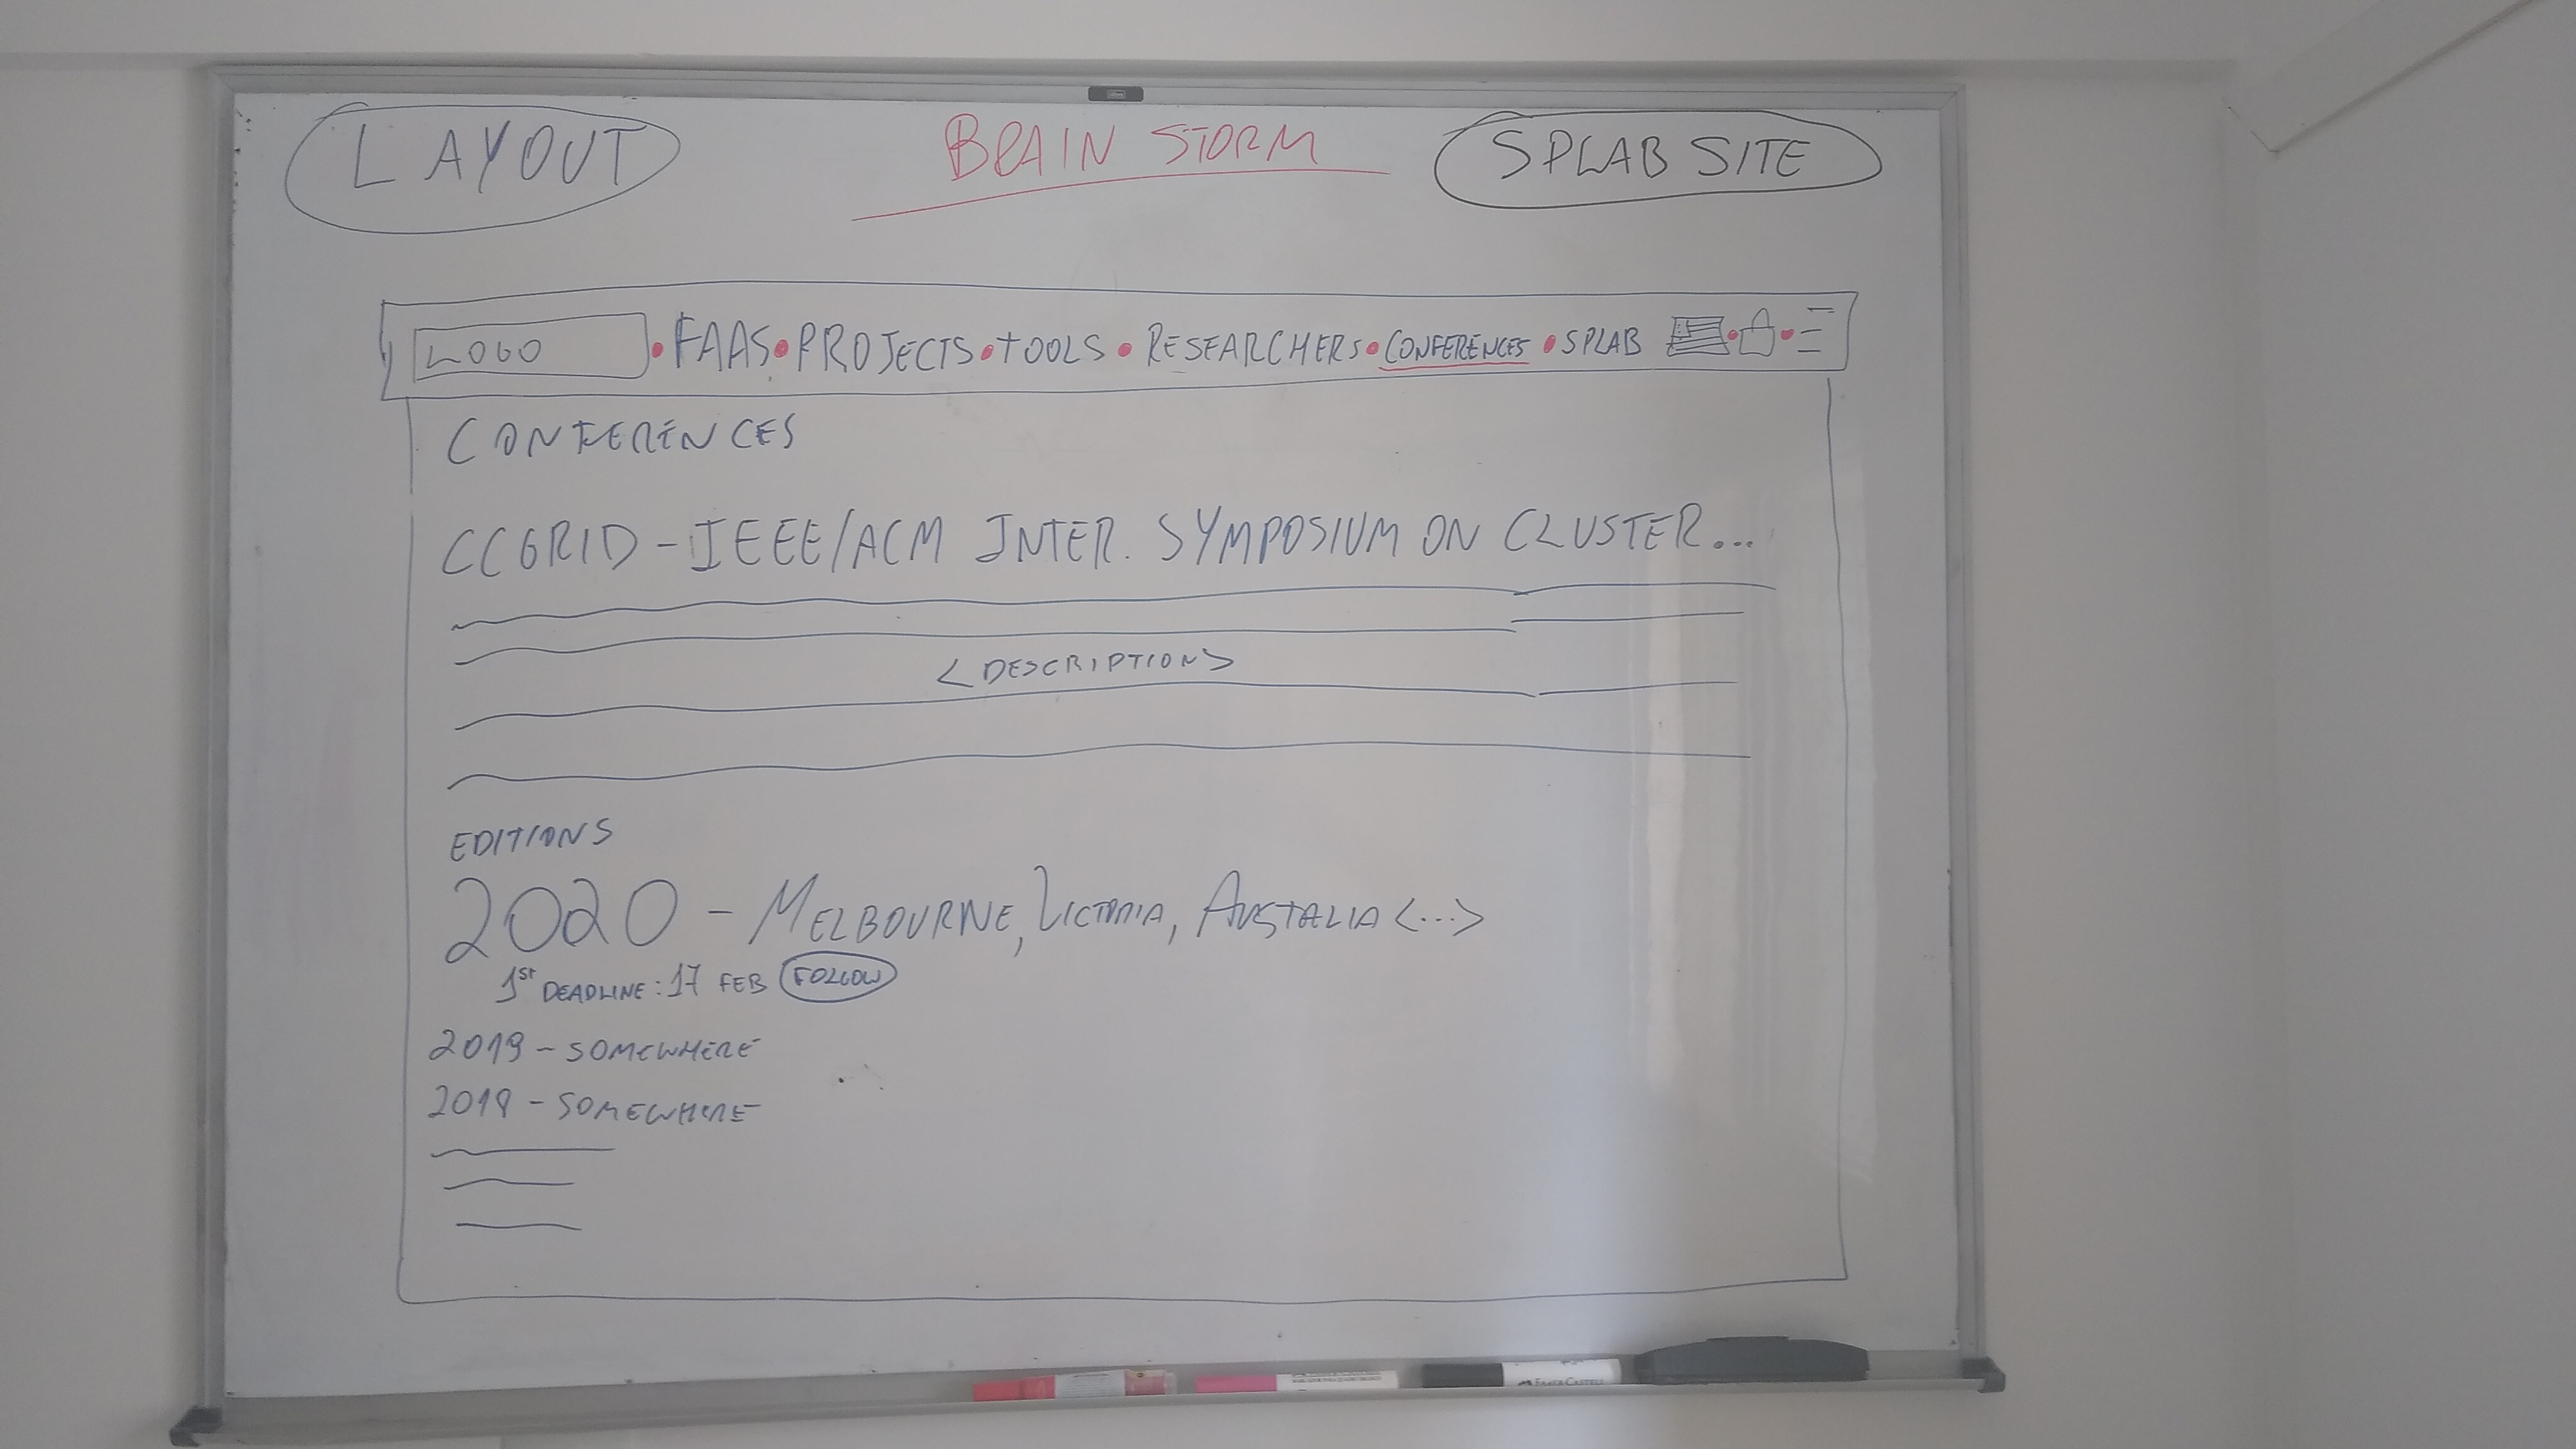 LAYOUT BRAIN STORM SPLAB SITE
LOGO • FAAS • PROJECTS • TOOLS • RESEARCHERS • CONFERENCES • SPLAB
CONFERENCES
CCGRID - IEEE/ACM INTER. SYMPOSIUM ON CLUSTER...
<DESCRIPTION>
EDITIONS
2020 - MELBOURNE, VICTORIA, AUSTALIA <...>
1ST DEADLINE: 17 FEB FOLLOW
2019 - SOMEWHERE
2018 - SOMEWHERE
FABER-CASTELL